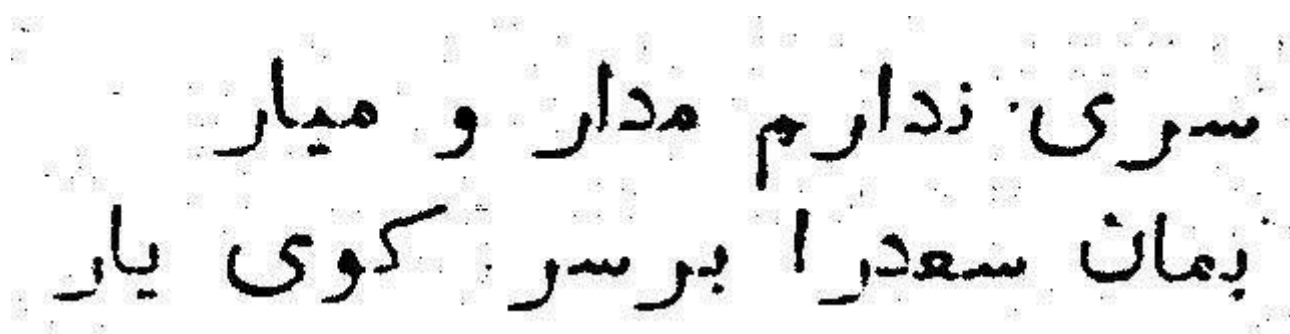 سری ندارم مدار و میار
بمان سعدرا برسر کوی یار